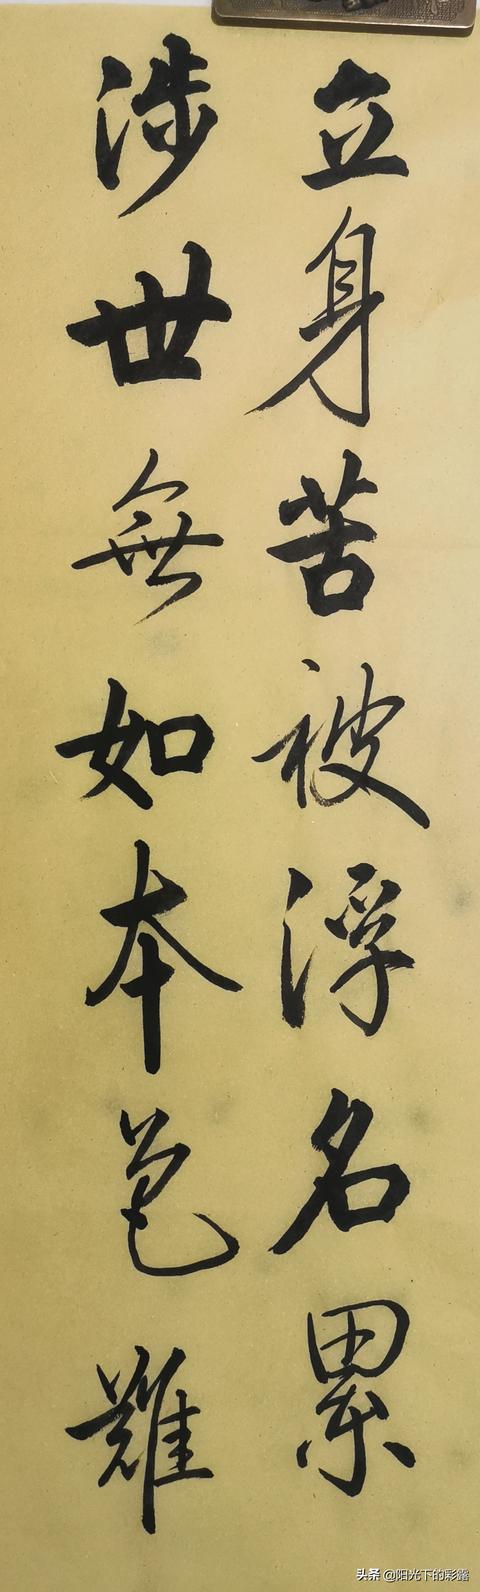 立身苦被浮名累
涉世無如本色難
头条 @阳光下的彩露